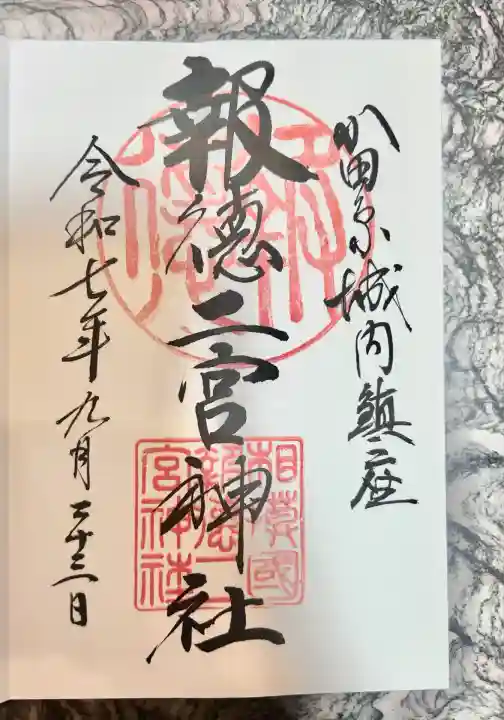 小田原城内鎮座
報徳二宮神社
令和七年九月二十三日
報徳
相模國
報徳二
宮神社